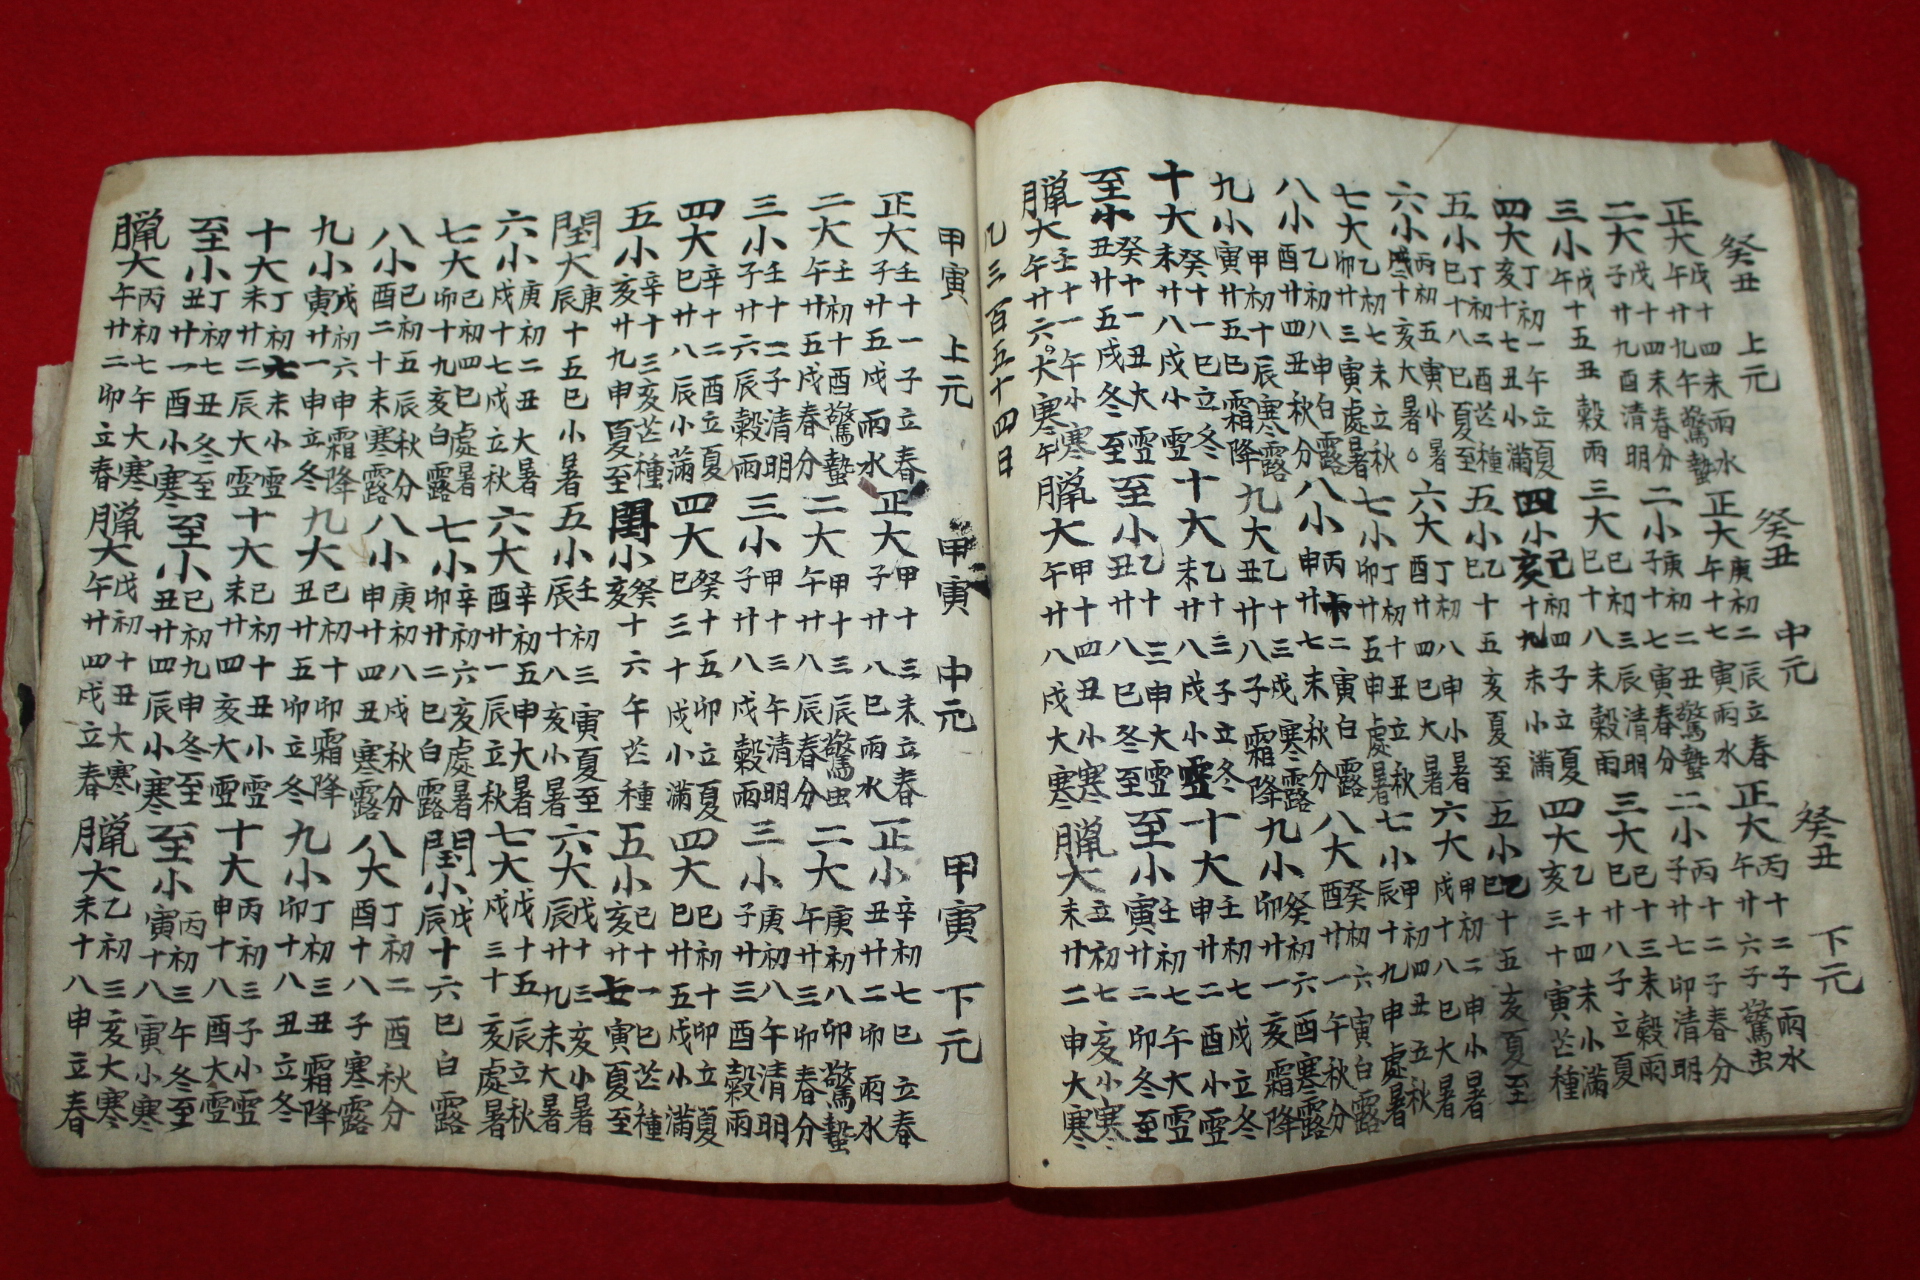 癸丑 上元
正大 戊十四未雨水 午廿九午驚蟄
二大 戊十四未春分 子廿九酉清明
三小 戊午十五丑穀雨
四大 丁初一午立夏 亥十七丑小滿
五小 丁初二酉芒種 巳十八巳夏至
六小 丙初五寅小暑 戌十亥大暑
七大 乙初七未立秋 卯廿三寅處暑
八小 乙初八申白露 酉廿四丑秋分
九小 甲初十辰寒露 寅廿五巳霜降
十大 癸十一巳立冬 未廿八戌小雪
至小 癸十一丑大雪 丑廿五戌冬至
臘大 壬十一午小寒 午廿六大寒午
凡三百五十四日
癸丑 中元
正大 庚初二辰立春 午十七寅雨水
二小 庚初二丑驚蟄 子十七寅春分
三大 巳初三辰清明 巳十八未穀雨
四小 己初四子立夏 亥十九未小滿
五小 乙巳十五亥夏至
六大 丁初八申小暑 酉廿四巳大暑
七小 丁初十丑立秋 卯廿五申處暑
八小 丙十二寅白露 申廿七未秋分
九大 乙十三戌寒露 丑廿八子霜降
十大 乙十三子立冬 未廿八戌小雪
至小 乙十三申大雪 丑廿八巳冬至
臘大 甲十四丑小寒 午廿八戌大寒
癸丑 下元
正大 丙十二子雨水 午廿六子驚虫
二小 丙十二子春分 子廿七卯清明
三大 巳十三未穀雨 巳廿八子立夏
四大 乙十四未小滿 亥三十寅芒種
五小 乙巳十五亥夏至
六大 甲初二申小暑 戌十八巳大暑
七小 甲初四丑立秋 辰十九申處暑
八大 癸初六寅白露 酉廿一午秋分
九小 癸初六酉寒露 卯廿一亥霜降
十大 壬初七戌立冬 申廿二酉小雪
至小 壬初七午大雪 寅廿二卯冬至
臘大 立初七亥小寒 未廿二申大寒
甲寅 上元
正大 壬十一子立春 子廿五戌雨水
二大 壬初十酉驚蟄 午廿五戌春分
三小 壬十二子清明 子廿六辰穀雨
四大 辛十二酉立夏 巳廿八辰小滿
五小 辛十三亥芒種 亥廿九申夏至
閏大 庚辰十五巳小暑
六小 庚初二丑大暑 戌十七戌立秋
七大 己初四巳處暑 卯十九亥白露
八小 己初五辰秋分 酉二十未寒露
九小 戊初六申霜降 寅廿一申立冬
十大 丁初七未小雪 未廿二辰大雪
至小 丁初七丑冬至 丑廿一酉小寒
臘大 丙初七午大寒 午廿二卯立春
甲寅 中元
正大 甲十三未立春 子廿八巳雨水
二大 甲十三辰驚虫 午廿八辰春分
三小 甲十三午清明 子廿八戌穀雨
四大 癸十五卯立夏 巳三十戌小滿
閏小 癸亥十六午芒種
五小 壬初三寅夏至 辰十八亥小暑
六大 辛初五申大暑 酉廿一辰立秋
七小 辛初六亥處暑 卯廿二巳白露
八小 庚初八戌秋分 申廿四丑寒露
九大 己初十卯霜降 丑廿五卯立冬
十大 已初十丑小雪 未廿四亥大雪
至小 己初九申冬至 丑廿四辰小寒
臘大 戊初十丑大寒 午廿四戌立春
甲寅 下元
正小 辛初七巳立春 丑廿二卯雨水
二大 庚初八卯驚蟄 午廿三卯春分
三小 庚初八午清明 子廿三酉穀雨
四大 巳初十卯立夏 巳廿五戌小滿
五小 己十一巳芒種 亥廿七寅夏至
六大 戊十三亥小暑 辰廿九未大暑
七大 戊十五辰立秋 戌三十亥處暑
閏小 戊辰十六巳白露
八大 丁初二酉秋分 酉十八子寒露
九小 丁初三丑霜降 卯十八丑立冬
十大 丙初三子小雪 申十八酉大雪
至小 丙初三午冬至 寅十八寅小寒
臘大 乙初三亥大寒 未十八申立春